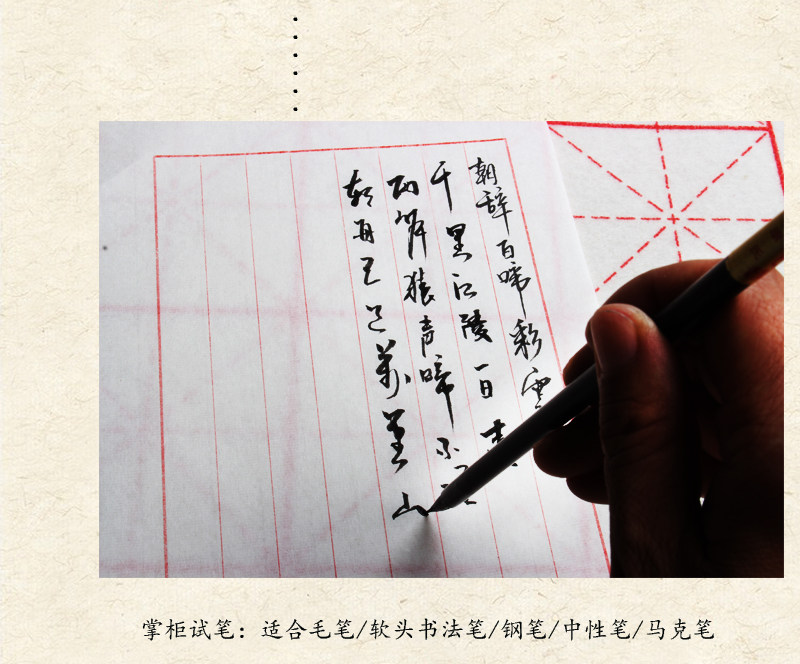 朝辞百啼彩雲
千里江陵一日
两岸猿声啼不
轻舟已过萬重山
掌柜试笔：适合毛笔/软头书法笔/钢笔/中性笔/马克笔